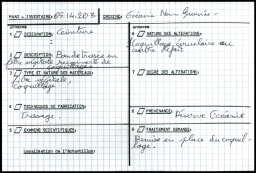 MAAO - INVENTAIRE: 05.14.203
ORIGINE: Océanie Nlle Guinée.
1 DESIGNATION: Ceinture
2 DESCRIPTION: Bande tressée en
fibre végétale recouverte de
coquillages.
3 TYPE ET NATURE DES MATERIAUX:
fibre végétale,
coquillage
4 TECHNIQUES DE FABRICATION:
Tressage.
5 EXAMENS SCIENTIFIQUES:
Localisation de l'échantillon:
6 NATURE DES ALTERATIONS:
coquillage circulaire au
centre
7 DEGRE DES ALTERATIONS:
8 PROVENANCE:
Réserve Océanie
9 TRAITEMENT DEMANDE:
Remise en place du coquil-
lage.